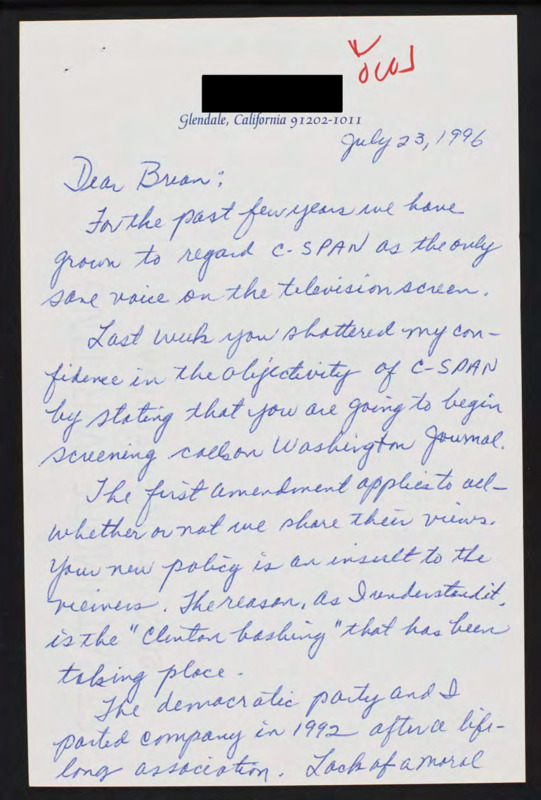 Glendale, California 91202-1011
July 23, 1996
Dear Brian:
For the past few years we have
grown to regard C-SPAN as the only
sane voice on the television screen.
Last week you shattered my con-
fidence in the objectivity of C-SPAN
by stating that you are going to begin
screening calls on Washington Journal.
The first amendment applies to all-
whether or not we share their views.
Your new policy is an insult to the
viewers. The reason, as I understand it,
is the "Clinton bashing" that has been
taking place.
The democratic party and I
parted company in 1992 after a life-
long association. Lack of a moral